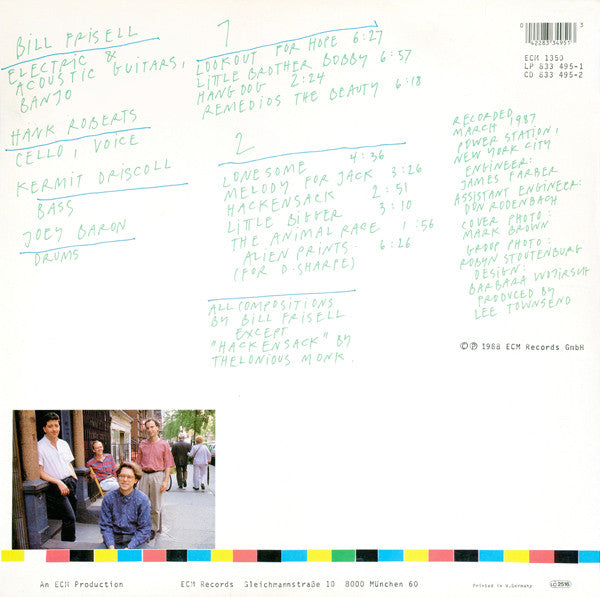 BILL FRISELL
ELECTRIC &
ACOUSTIC GUITARS,
BANJO
HANK ROBERTS
CELLO, VOICE
KERMIT DRISCOLL
BASS
JOEY BARON
DRUMS
1
LOOKOUT FOR HOPE 6:27
LITTLE BROTHER BOBBY 6:57
HANGDOG 2:24
REMEDIOS THE BEAUTY 6:18
2
LONESOME 4:36
MELODY FOR JACK 3:26
HACKENSACK 2:51
LITTLE BIGGER 3:10
THE ANIMAL RACE 1:56
ALIEN PRINTS 6:26
(FOR D. SHARPE)
ALL COMPOSITIONS
BY BILL FRISELL
EXCEPT
"HACKENSACK" BY
THELONIOUS MONK.
0 42283 34951 3
ECM 1350
LP 833 495-1
CD 833 495-2
RECORDED
MARCH 1987
POWER STATION,
NEW YORK CITY
ENGINEER:
JAMES FARBER
ASSISTANT ENGINEER:
DON RODENBACH
COVER PHOTO:
MARK BROWN
GROUP PHOTO:
ROBYN STOUTENBURG
DESIGN:
BARBARA WOJIRSCH
PRODUCED BY
LEE TOWNSEND
© ℗ 1988 ECM Records GmbH
An ECM Production
ECM Records Gleichmannstraße 10 8000 München 60
Printed in W.Germany
LC 2516